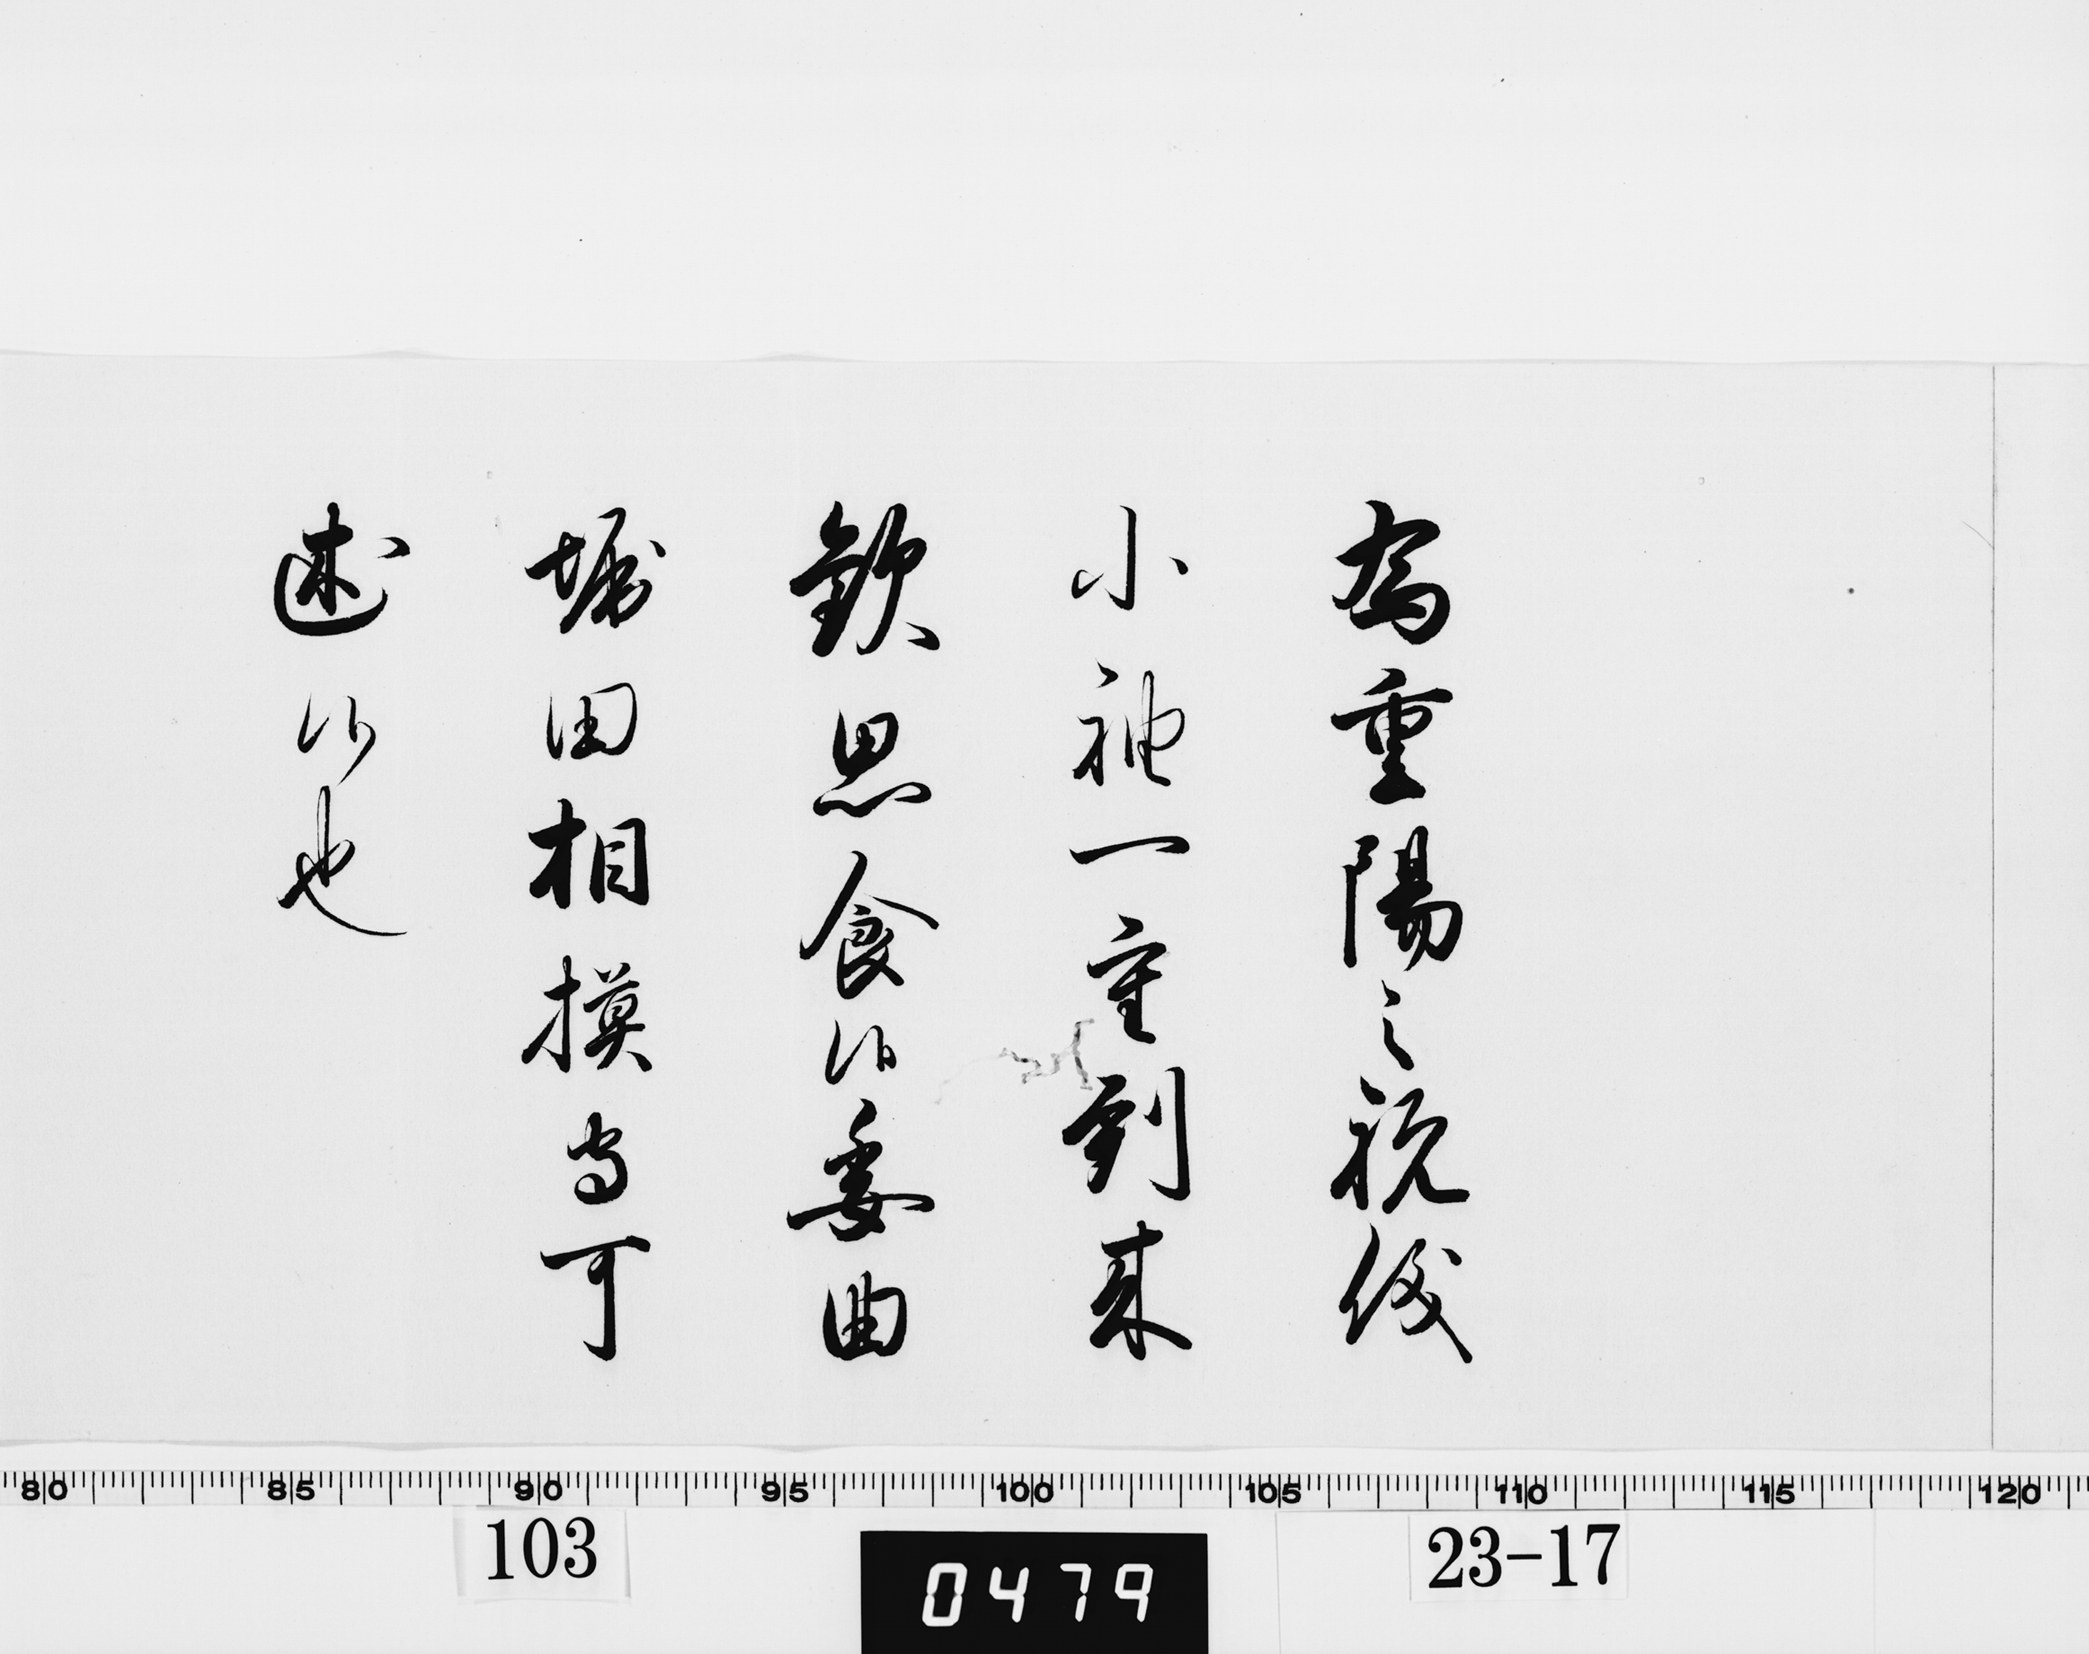 為重陽之祝儀
小袖一重到来
歓思食候委曲
堀田相摸守可
述候也
80 85 90 95 100 105 110 115 120
103
0479
23-17